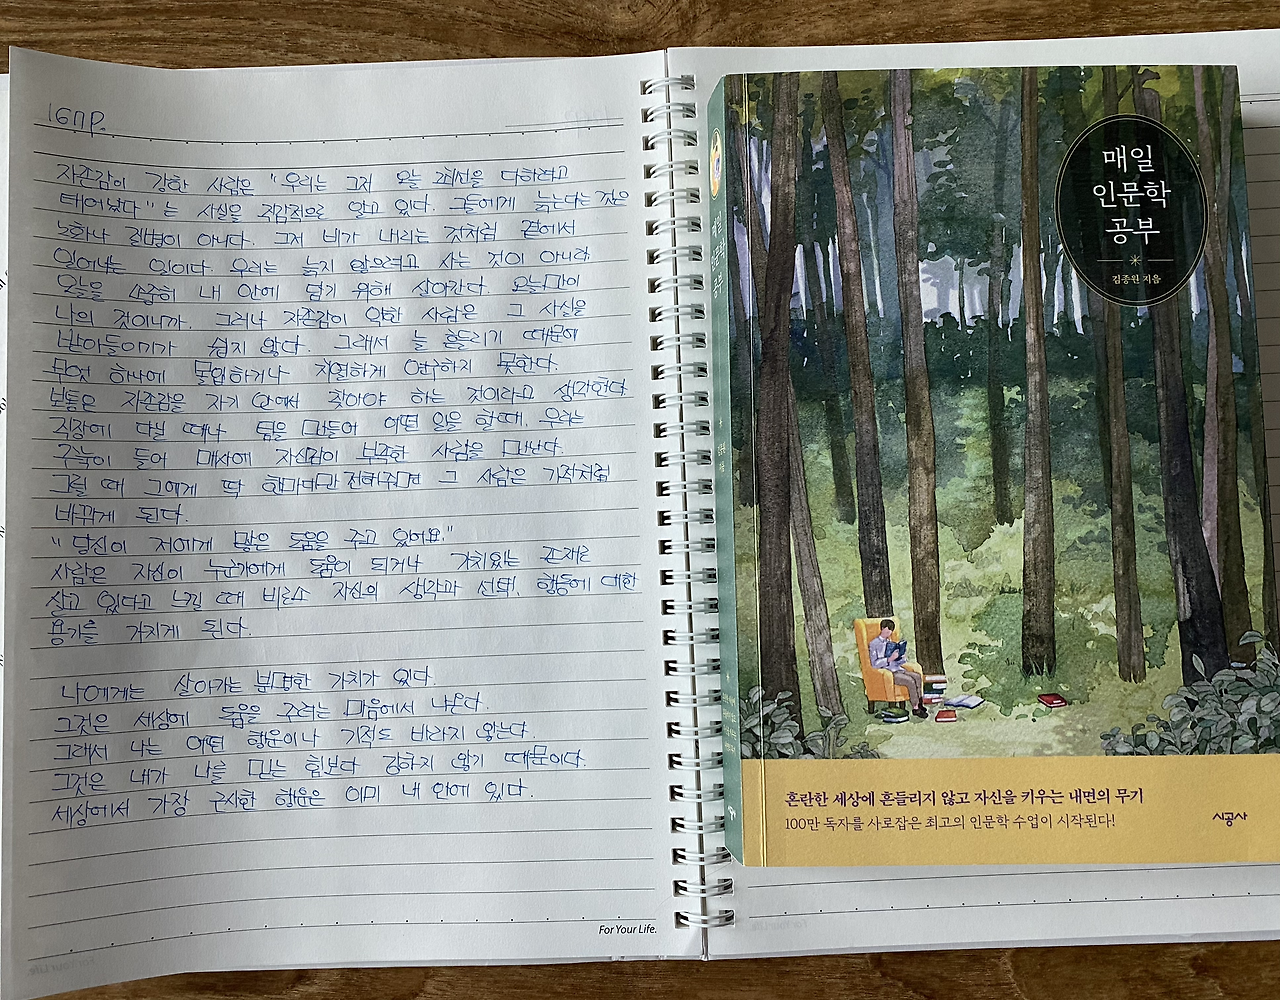 167P.
자존감이 강한 사람은 "우리는 그저 오늘 최선을 다하려고
태어났다"는 사실을 직감적으로 알고 있다. 그들에게 늙는다는 것은
노화나 질병이 아니다. 그저 비가 내리는 것처럼 곁에서
일어나는 일이다. 우리는 늙지 않으려고 사는 것이 아니라
오늘을 소중히 내 안에 담기 위해 살아간다. 오늘만이
나의 것이니까. 그러나 자존감이 약한 사람은 그 사실을
받아들이기가 쉽지 않다. 그래서 늘 흔들리기 때문에
무엇 하나에 몰입하거나 치열하게 연구하지 못한다.
보통은 자존감을 자기 안에서 찾아야 하는 것이라고 생각한다.
직장에 다닐 때나 팀을 만들어 어떤 일을 할 때, 우리는
주눅이 들어 매사에 자신감이 부족한 사람을 만난다.
그럴 때 그에게 딱 한마디만 전해주면 그 사람은 기적처럼
바뀌게 된다.
"당신이 저에게 많은 도움을 주고 있어요."
사람은 자신이 누군가에게 도움이 되거나 가치있는 존재로
살고 있다고 느낄 때 비로소 자신의 생각과 선택, 행동에 대한
용기를 가지게 된다.
나에게는 살아가는 분명한 가치가 있다.
그것은 세상에 도움을 주려는 마음에서 나온다.
그래서 나는 어떤 행운이나 기적도 바라지 않는다.
그것은 내가 나를 믿는 힘보다 강하지 않기 때문이다.
세상에서 가장 근사한 행운은 이미 내 안에 있다.
For Your Life.
매일 인문학 공부
매일
인문학
공부
김종원 지음
혼란한 세상에 흔들리지 않고 자신을 키우는 내면의 무기
100만 독자를 사로잡은 최고의 인문학 수업이 시작된다!
시공사